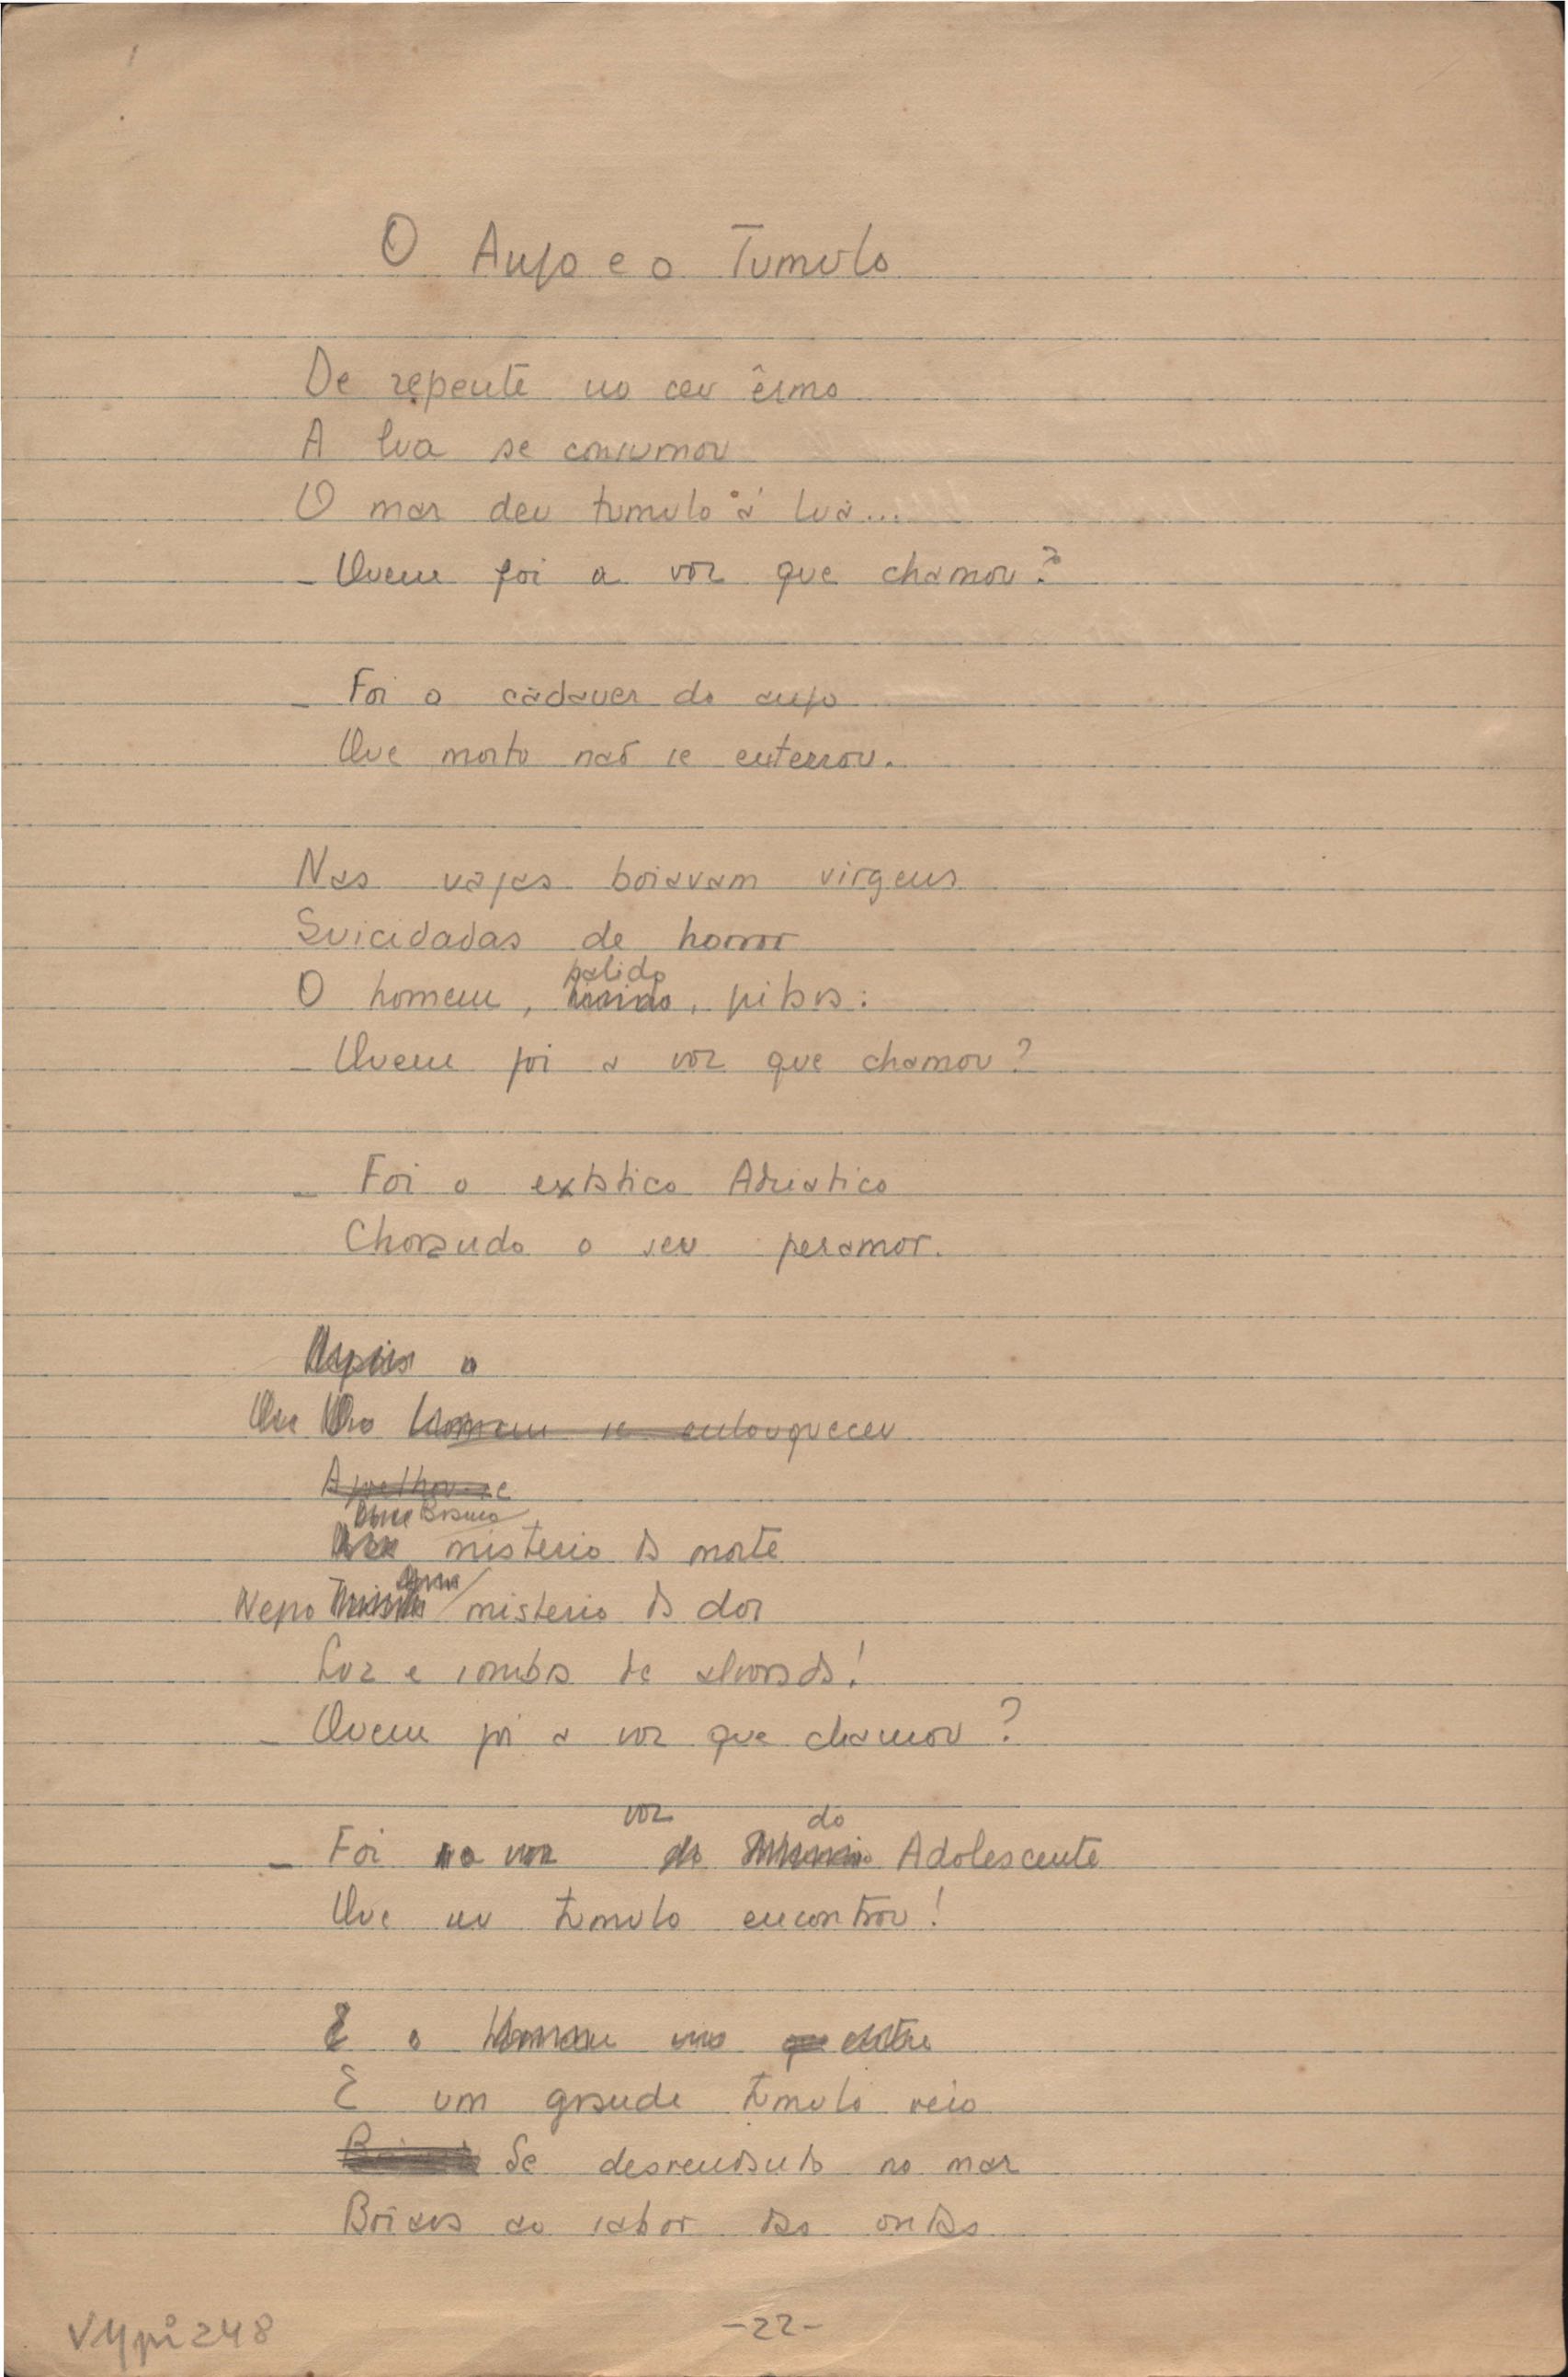 O Anjo e o Tumulo
De repente no ceu êrmo
A lua se consumou
O mar deu tumulo á lua...
- Quem foi a voz que chamou?
- Foi o cadaver do anjo
Que morto não se enterrou.
Nas vagas boiavam virgens
Suicidadas de horror
palido
O homem, gritou:
- Quem foi a voz que chamou?
- Foi o extatico Adriatico
Chorando o seu peramor.
Depois o
Homem se enlouqueceu
Ajoelhou-se
Branco
misterio da morte
Negro misterio da dor
Luz e sombra da alvorada!
- Quem foi a voz que chamou?
voz do
- Foi a voz do Adolescente
Que um tumulo encontrou!
E o Homem
E um grande tumulo veio
Se desvendando no mar
Boiava ao sabor das ondas
-22-
VMpi248